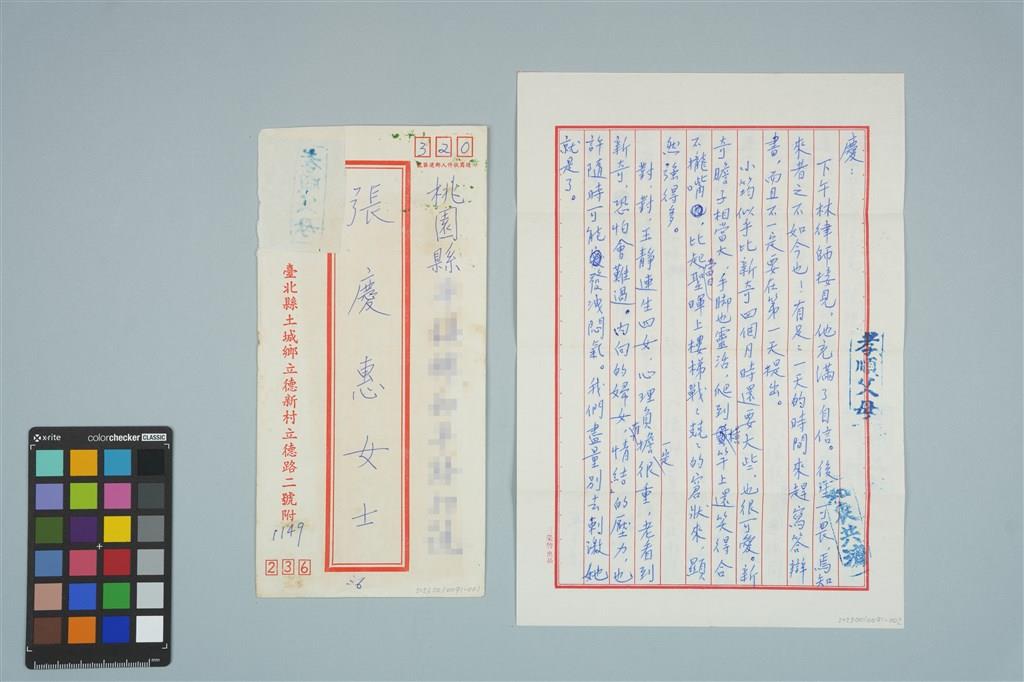 320
遞寄收件人郵遞區號
桃園縣
張慶惠女士
孝順父母
臺北縣土城鄉立德新村立德路二號附
1149
236
26
慶：
下午林律師接見，他充滿了自信。後生可畏，焉知
來者之不如今也！有足足一天的時間來趕寫答辯
書，而且不一定要在第一天提出。
小筠似乎比新奇四個月時還要大些，也很可愛。新
奇膽子相當大，手脚也靈活，爬到橫竿上還笑得合
不攏嘴，比起聖暉當日上樓梯戰戰兢兢的窘狀來，顯
然強得多。
對，對，王靜連生四女，心理負擔一定很重，老看到
新奇，恐怕會難過。內向的婦女，情結的壓力，也
許隨時可能發洩悶氣。我們盡量別去刺激她
就是了。
孝順父母
榮竹出品
x-rite
colorchecker CLASSIC
mm